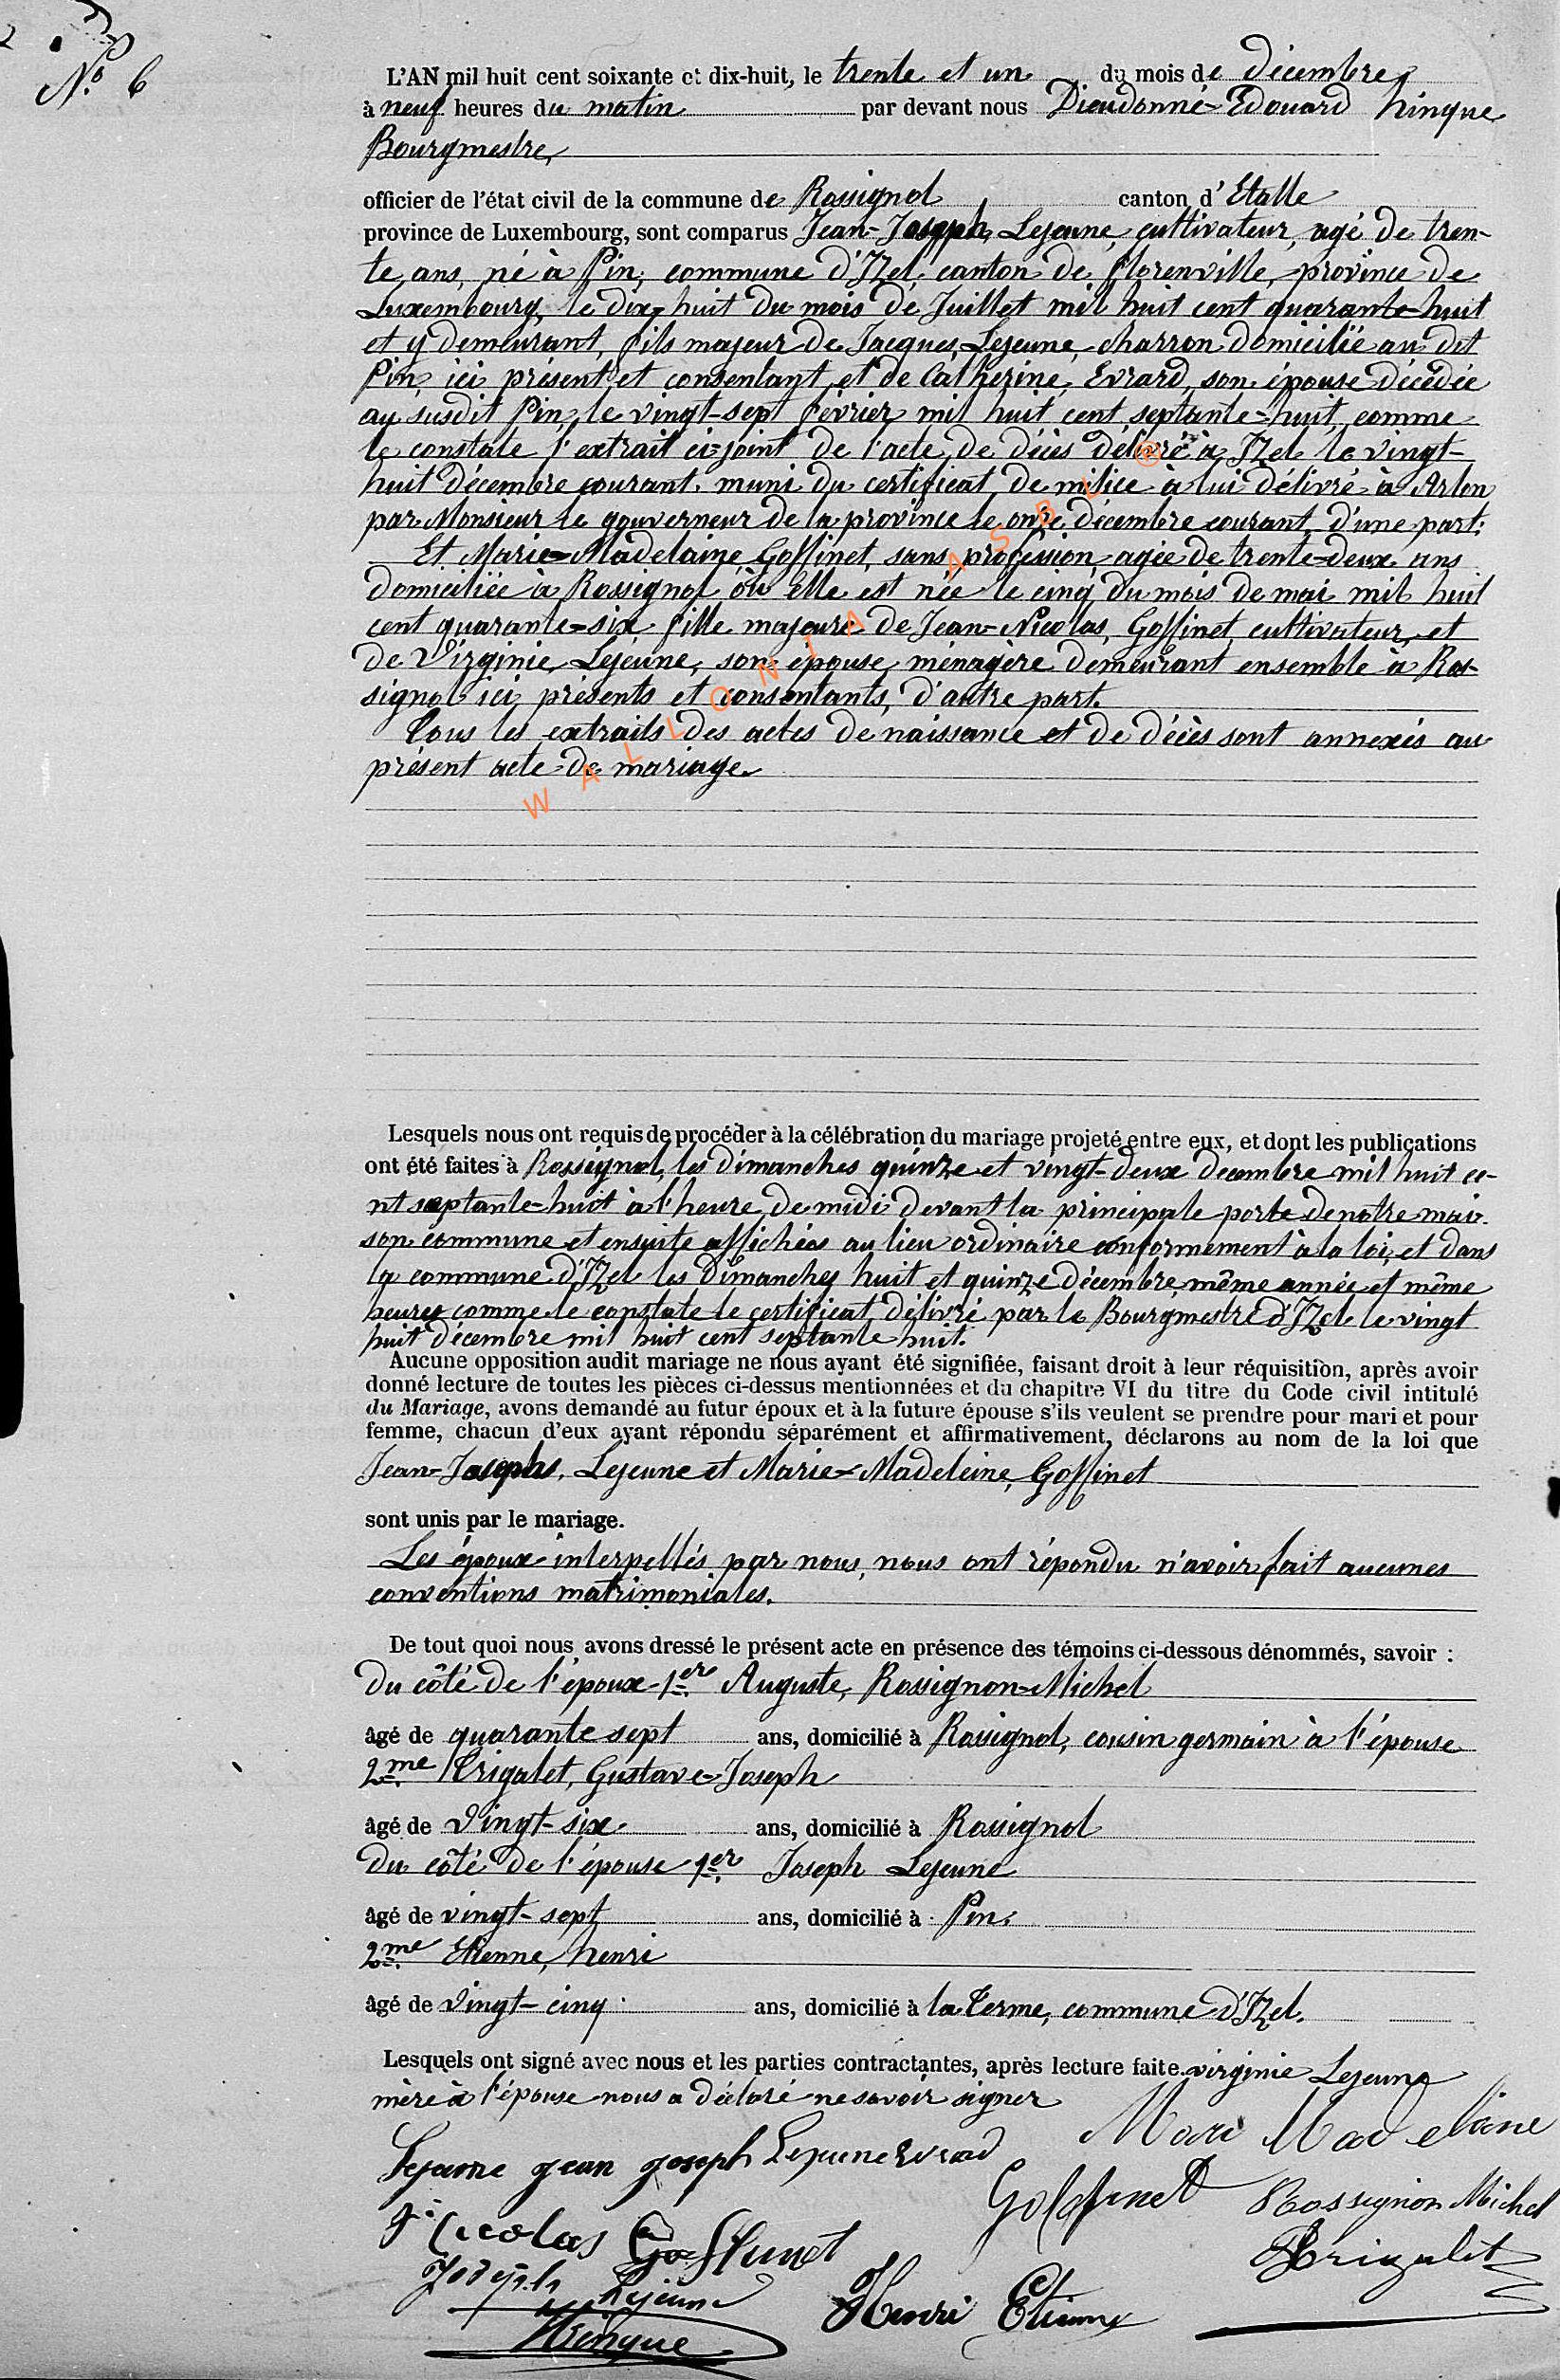 N.o 6
L'AN mil huit cent soixante et dix-huit, le trente et un du mois de décembre
à neuf heures du matin par devant nous Dieudonné-Edouard hinque
Bourgmestre,
officier de l'état civil de la commune de Rossignol canton d'Etalle
province de Luxembourg, sont comparus Jean-Joseph, Lejeune, cultivateur, agé de tren-
te ans, né à Pin, commune d'Izel, canton de florenville, province de
Luxembourg, le dix-huit du mois de Juillet mil huit cent quarante-huit
et y demeurant, fils majeur de Jacques, Lejeune, charron domicilié au dit
Pin, ici présent et consentant et de Catherine, Evrard, son épouse décédée
au susdit Pin, le vingt-sept février mil huit cent septante-huit, comme
le constate l'extrait ci-joint de l'acte de décès délivré à Izel le vingt-
huit décembre courant. muni du certificat de milice à lui délivré à Arlon
par Monsieur le gouverneur de la province le onze décembre courant, d'une part:
Et Marie-Madelaine, Goffinet, sans profession, agée de trente-deux ans
domiciliée à Rossignol où Elle est née le cinq du mois de mai mil huit
cent quarante-six fille majeure de Jean-Nicolas, Goffinet, cultivateur, et
de Virginie, Lejeune, son épouse, ménagère demeurant ensemble à Ros-
signol ici présents et consentants, d'autre part.
Tous les extraits des actes de naissance et de décès sont annexés au
présent acte de mariage.
WALLONIA ASBL ®
Lesquels nous ont requis de procéder à la célébration du mariage projeté entre eux, et dont les publications
ont été faites à Rossignol, les dimanches quinze et vingt-deux decembre mil huit ce-
nt septante-huit à l'heure de midi devant la principale porte de notre mai-
son commune et ensuite affichées au lieu ordinaire conformement à la loi, et dans
la commune d'Izel les dimanches huit et quinze décembre, même année et même
heures comme le constate le certificat délivré par le Bourgmestre d'Izel le vingt
huit décembre mil huit cent septante huit.
Aucune opposition audit mariage ne nous ayant été signifiée, faisant droit à leur réquisition, après avoir
donné lecture de toutes les pièces ci-dessus mentionnées et du chapitre VI du titre du Code civil intitulé
du Mariage, avons demandé au futur époux et à la future épouse s'ils veulent se prendre pour mari et pour
femme, chacun d'eux ayant répondu séparément et affirmativement, déclarons au nom de la loi que
Jean-Joseph, Lejeune et Marie-Madeleine, Goffinet
sont unis par le mariage.
Les époux interpellés par nous, nous ont répondu n'avoir fait aucunes
conventions matrimoniales.
De tout quoi nous avons dressé le présent acte en présence des témoins ci-dessous dénommés, savoir :
Du côté de l'époux 1er Auguste, Rossignon-Michel
âgé de quarante sept ans, domicilié à Rossignol, cousin germain à l'épouse
2me Trigalet, Gustave-Joseph
âgé de vingt-six ans, domicilié à Rossignol
Du côté de l'épouse 1er Joseph Lejeune
âgé de vingt-sept ans, domicilié à Pin.
2me Etienne, henri
âgé de vingt-cinq ans, domicilié à la terme, commune d'Izel.
Lesquels ont signé avec nous et les parties contractantes, après lecture faite. virginie Lejeune
mère à l'épouse nous a déclaré ne savoir signer
Mari Madelaine
Lejeune jean joseph Lejeune Evrad
Goffinet Rossignon Michel
Nicolas Goffinet
Trigalet
Joseph Lejeune
Henri Etienne
Hinque